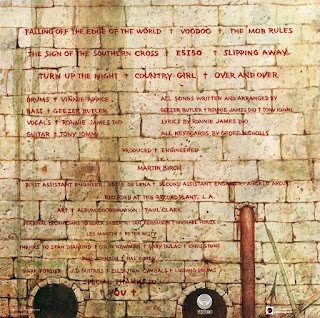 FALLING OFF THE EDGE OF THE WORLD † VOODOO †, THE MOB RULES
THE SIGN OF THE SOUTHERN CROSS † E5150 † SLIPPING AWAY
TURN UP THE NIGHT † COUNTRY GIRL † OVER AND OVER
DRUMS † VINNIE APPICE
BASS † GEEZER BUTLER
VOCALS † RONNIE JAMES DIO
GUITAR † TONY IOMMI
ALL SONGS WRITTEN AND ARRANGED BY
GEEZER BUTLER † RONNIE JAMES DIO † TONY IOMMI
LYRICS BY RONNIE JAMES DIO
ALL KEYBOARDS BY GEOFF NICHOLLS
PRODUCED † ENGINEERED
BY
MARTIN BIRCH
FIRST ASSISTANT ENGINEER EDDIE DELENA † SECOND ASSISTANT ENGINEER ANGELO ARCURI
RECORDED AT THE RECORD PLANT, L.A.
ART † ALBUM COORDINATION PAUL CLARK
LES MARTIN † PETER
THANKS TO
PAUL JOHNSON †
MARK FORSTER † ZILDJIAN CYMBALS † LUDWIG DRUMS
SPECIAL THANKS TO
† YOU †